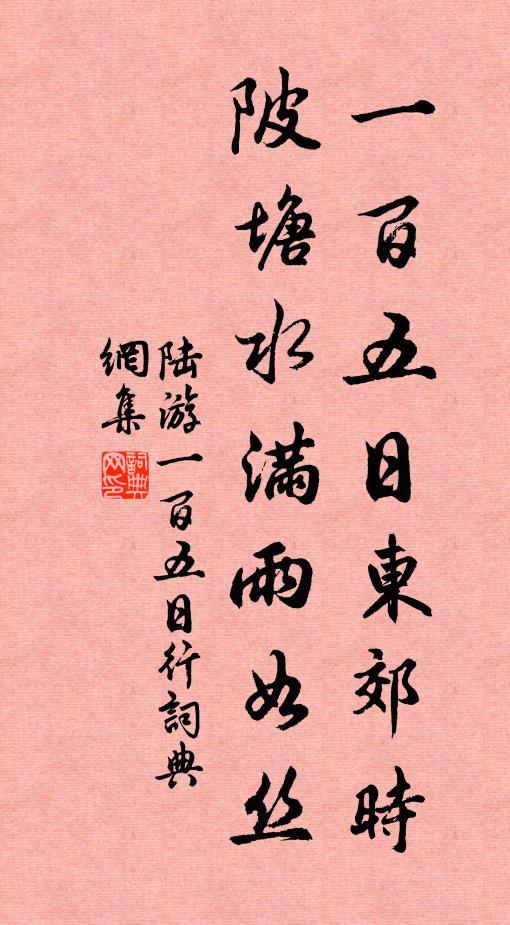 一百五日東郊時
陂塘水滿雨如丝
陆游一百五日行詞典
網集
詞典网印